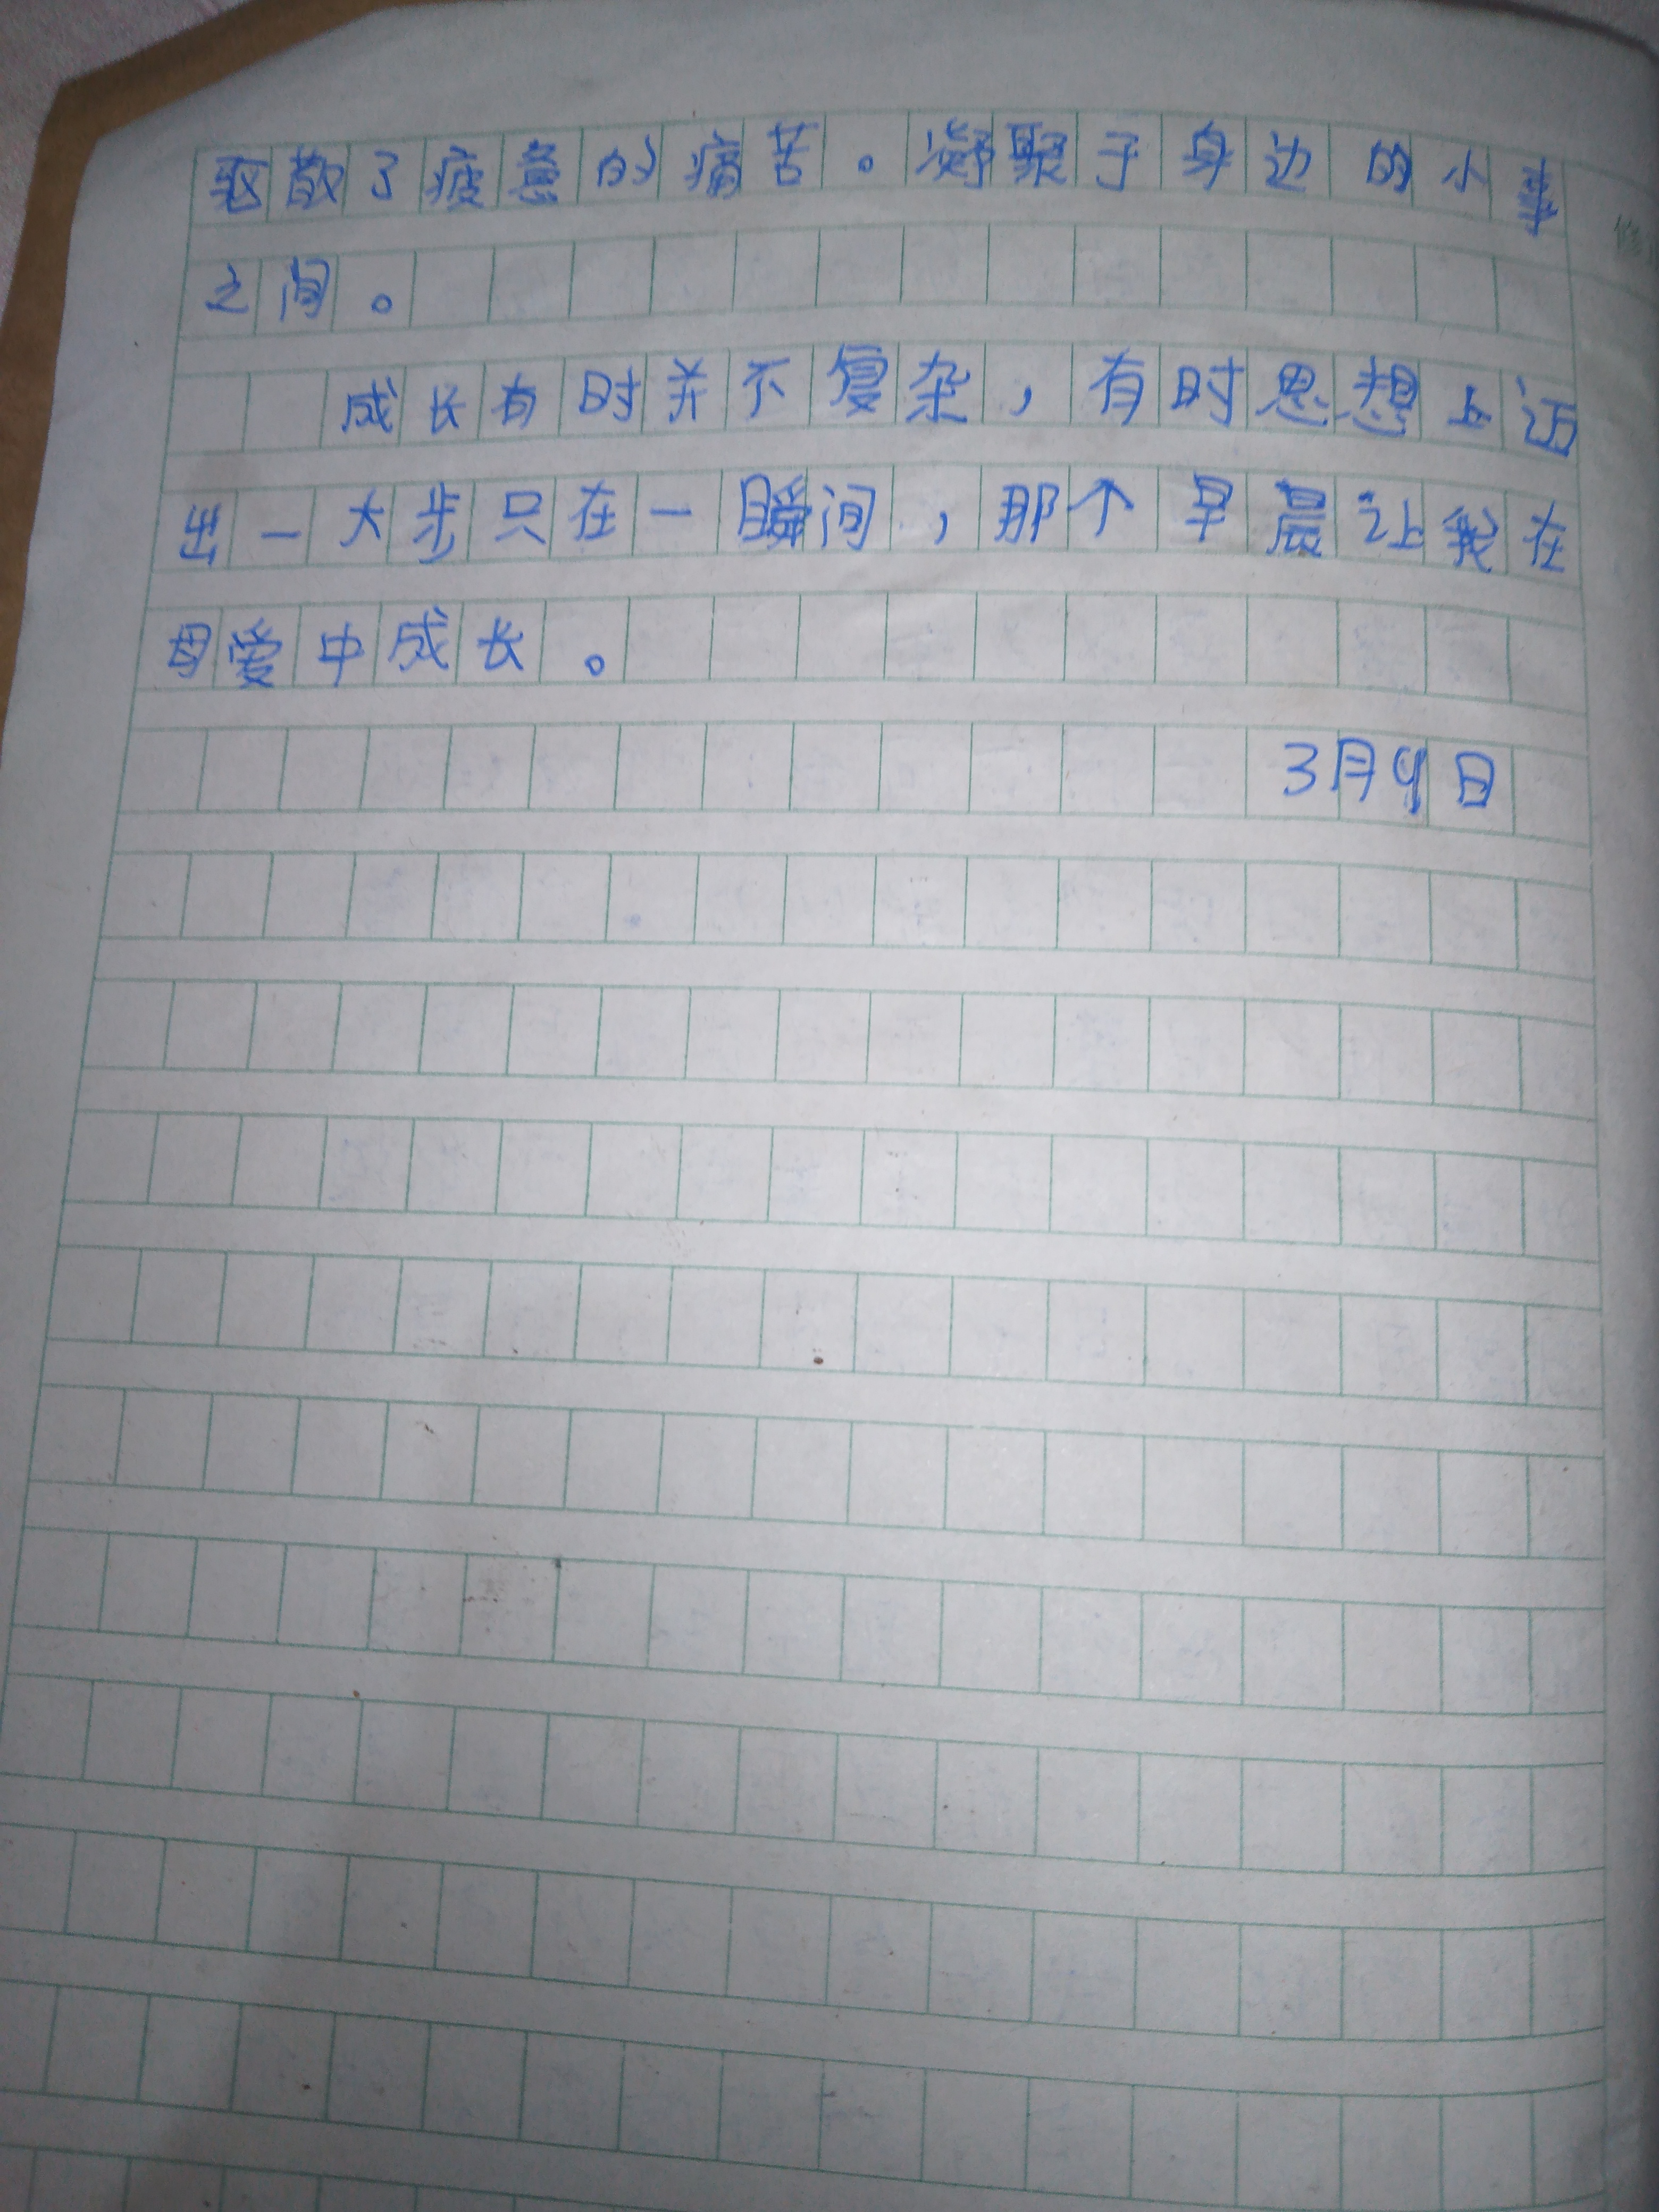 驱散了疲惫的痛苦。凝聚于身边的小事
之间。
成长有时并不复杂，有时思想上迈
出一大步只在一瞬间，那个早晨让我在
母爱中成长。
3月9日